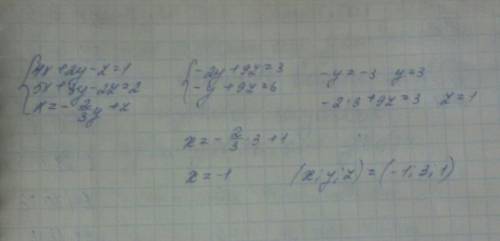 4x+2y-z=1
5x+3y-2z=2
x=-2/3y+z
-2y+9z=3
-y+9z=6
-y=-3 y=3
-2·3+9z=3 z=1
x=-2/3·3+1
x=-1
(x;y;z)=(-1;3;1)